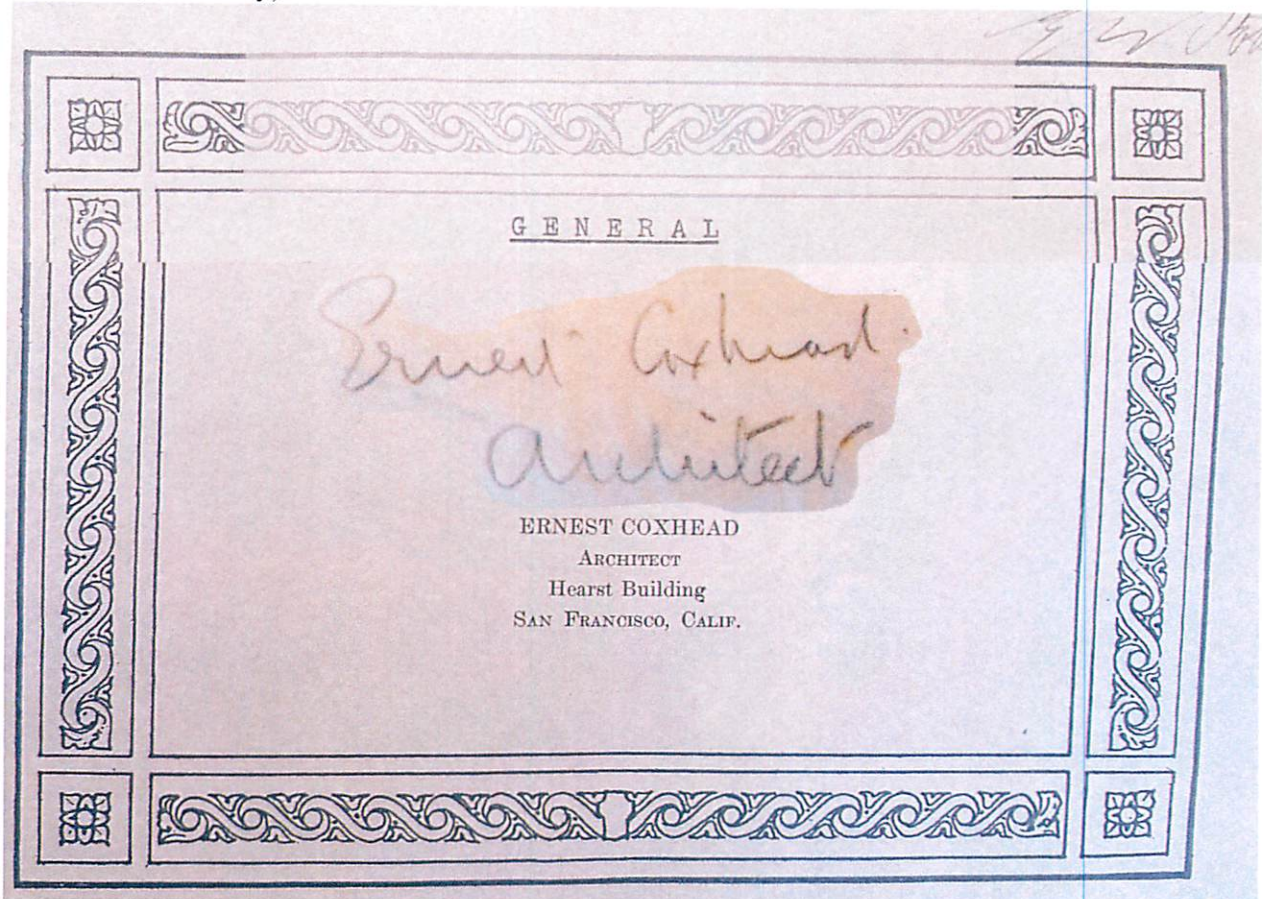 GENERAL
Ernest Coxhead
Architect
ERNEST COXHEAD
ARCHITECT
Hearst Building
SAN FRANCISCO, CALIF.